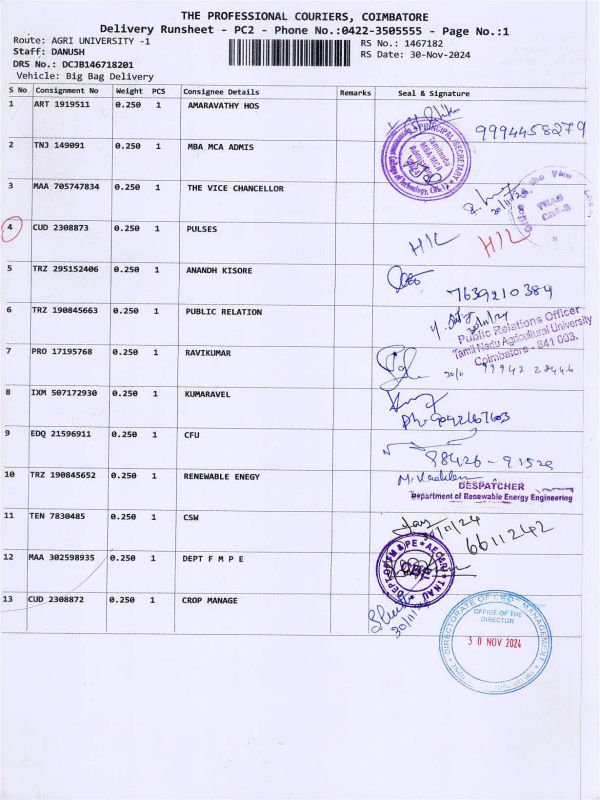 THE PROFESSIONAL COURIERS, COIMBATORE
Delivery Runsheet - PC2 - Phone No.:0422-3505555 - Page No.:1
Route: AGRI UNIVERSITY -1
RS No.: 1467182
Staff: DANUSH
RS Date: 30-Nov-2024
DRS No.: DCJB146718201
Vehicle: Big Bag Delivery
S No Consignment No Weight PCS Consignee Details Remarks Seal & Signature
1 ART 1919511 0.250 1 AMARAVATHY HOS
9994458279
2 TNJ 149091 0.250 1 MBA MCA ADMIS
PRINCIPAL SECRETARY
MBA/MCA
3 MAA 705747834 0.250 1 THE VICE CHANCELLOR
20/11/24
4 CUD 2308873 0.250 1 PULSES
H/L H/L
5 TRZ 295152406 0.250 1 ANANDH KISORE
7639210384
6 TRZ 190845663 0.250 1 PUBLIC RELATION
Public Relations Officer
Tamil Nadu Agricultural University
Coimbatore - 641 003.
7 PRO 17195768 0.250 1 RAVIKUMAR
30/11 99943 28446
8 IXM 507172930 0.250 1 KUMARAVEL
Ph:-9042167603
9 EDQ 21596911 0.250 1 CFU
98426-91529
10 TRZ 190845652 0.250 1 RENEWABLE ENEGY
DESPATCHER
Department of Renewable Energy Engineering
11 TEN 7830485 0.250 1 CSW
30/11/24
6611242
12 MAA 302598935 0.250 1 DEPT F M P E
13 CUD 2308872 0.250 1 CROP MANAGE
30/11
DIRECTORATE OF CROP MANAGEMENT
OFFICE OF THE
DIRECTOR
30 NOV 2024